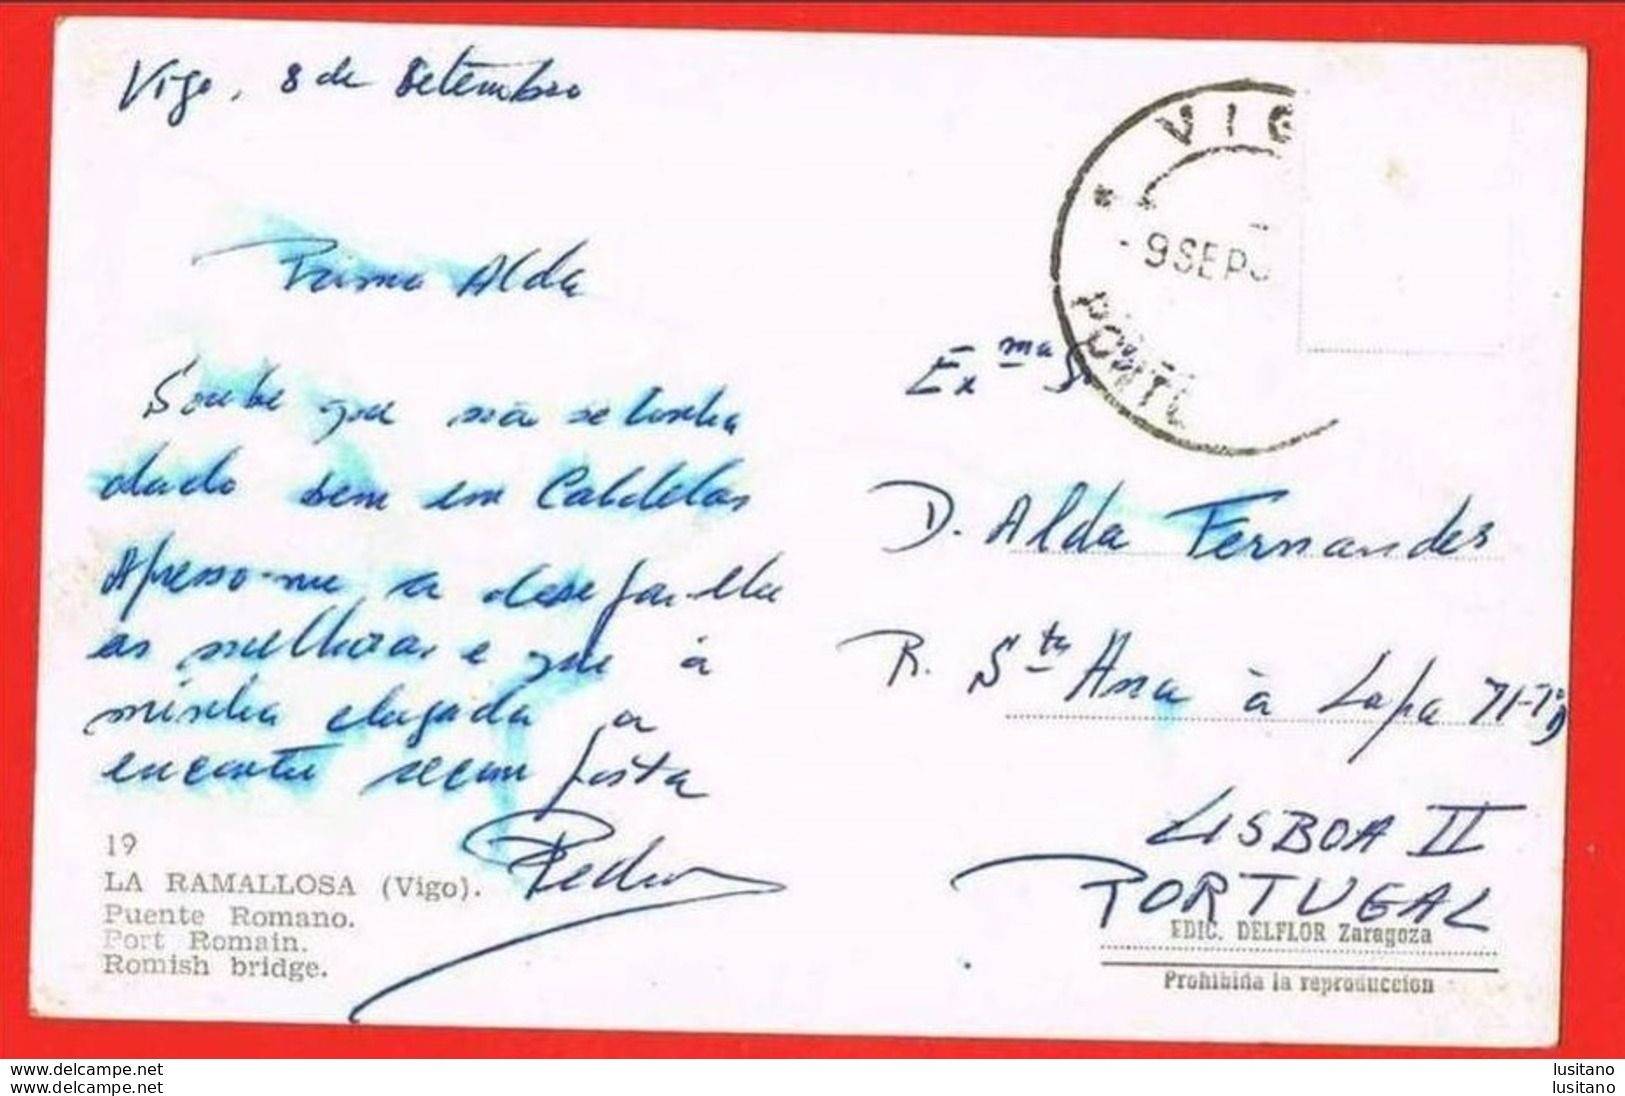 Vigo, 8 de Setembro
Prima Alda
Soube que não se tinha
dado bem em Caldelas
Apresso-me a desejar-lhe
as melhoras e que à
minha chegada a
encontre recomposta
Pedro
19
LA RAMALLOSA (Vigo).
Puente Romano.
Port Romain.
Romish bridge.
VIG
9 SEP
PONTE
Exma Sr
D. Alda Fernandes
R. Sta Ana à Lapa 71-1º D
LISBOA II
PORTUGAL
EDIC. DELFLOR Zaragoza
Prohibida la reproduccion
lusitano
lusitano
lusitano
lusitano